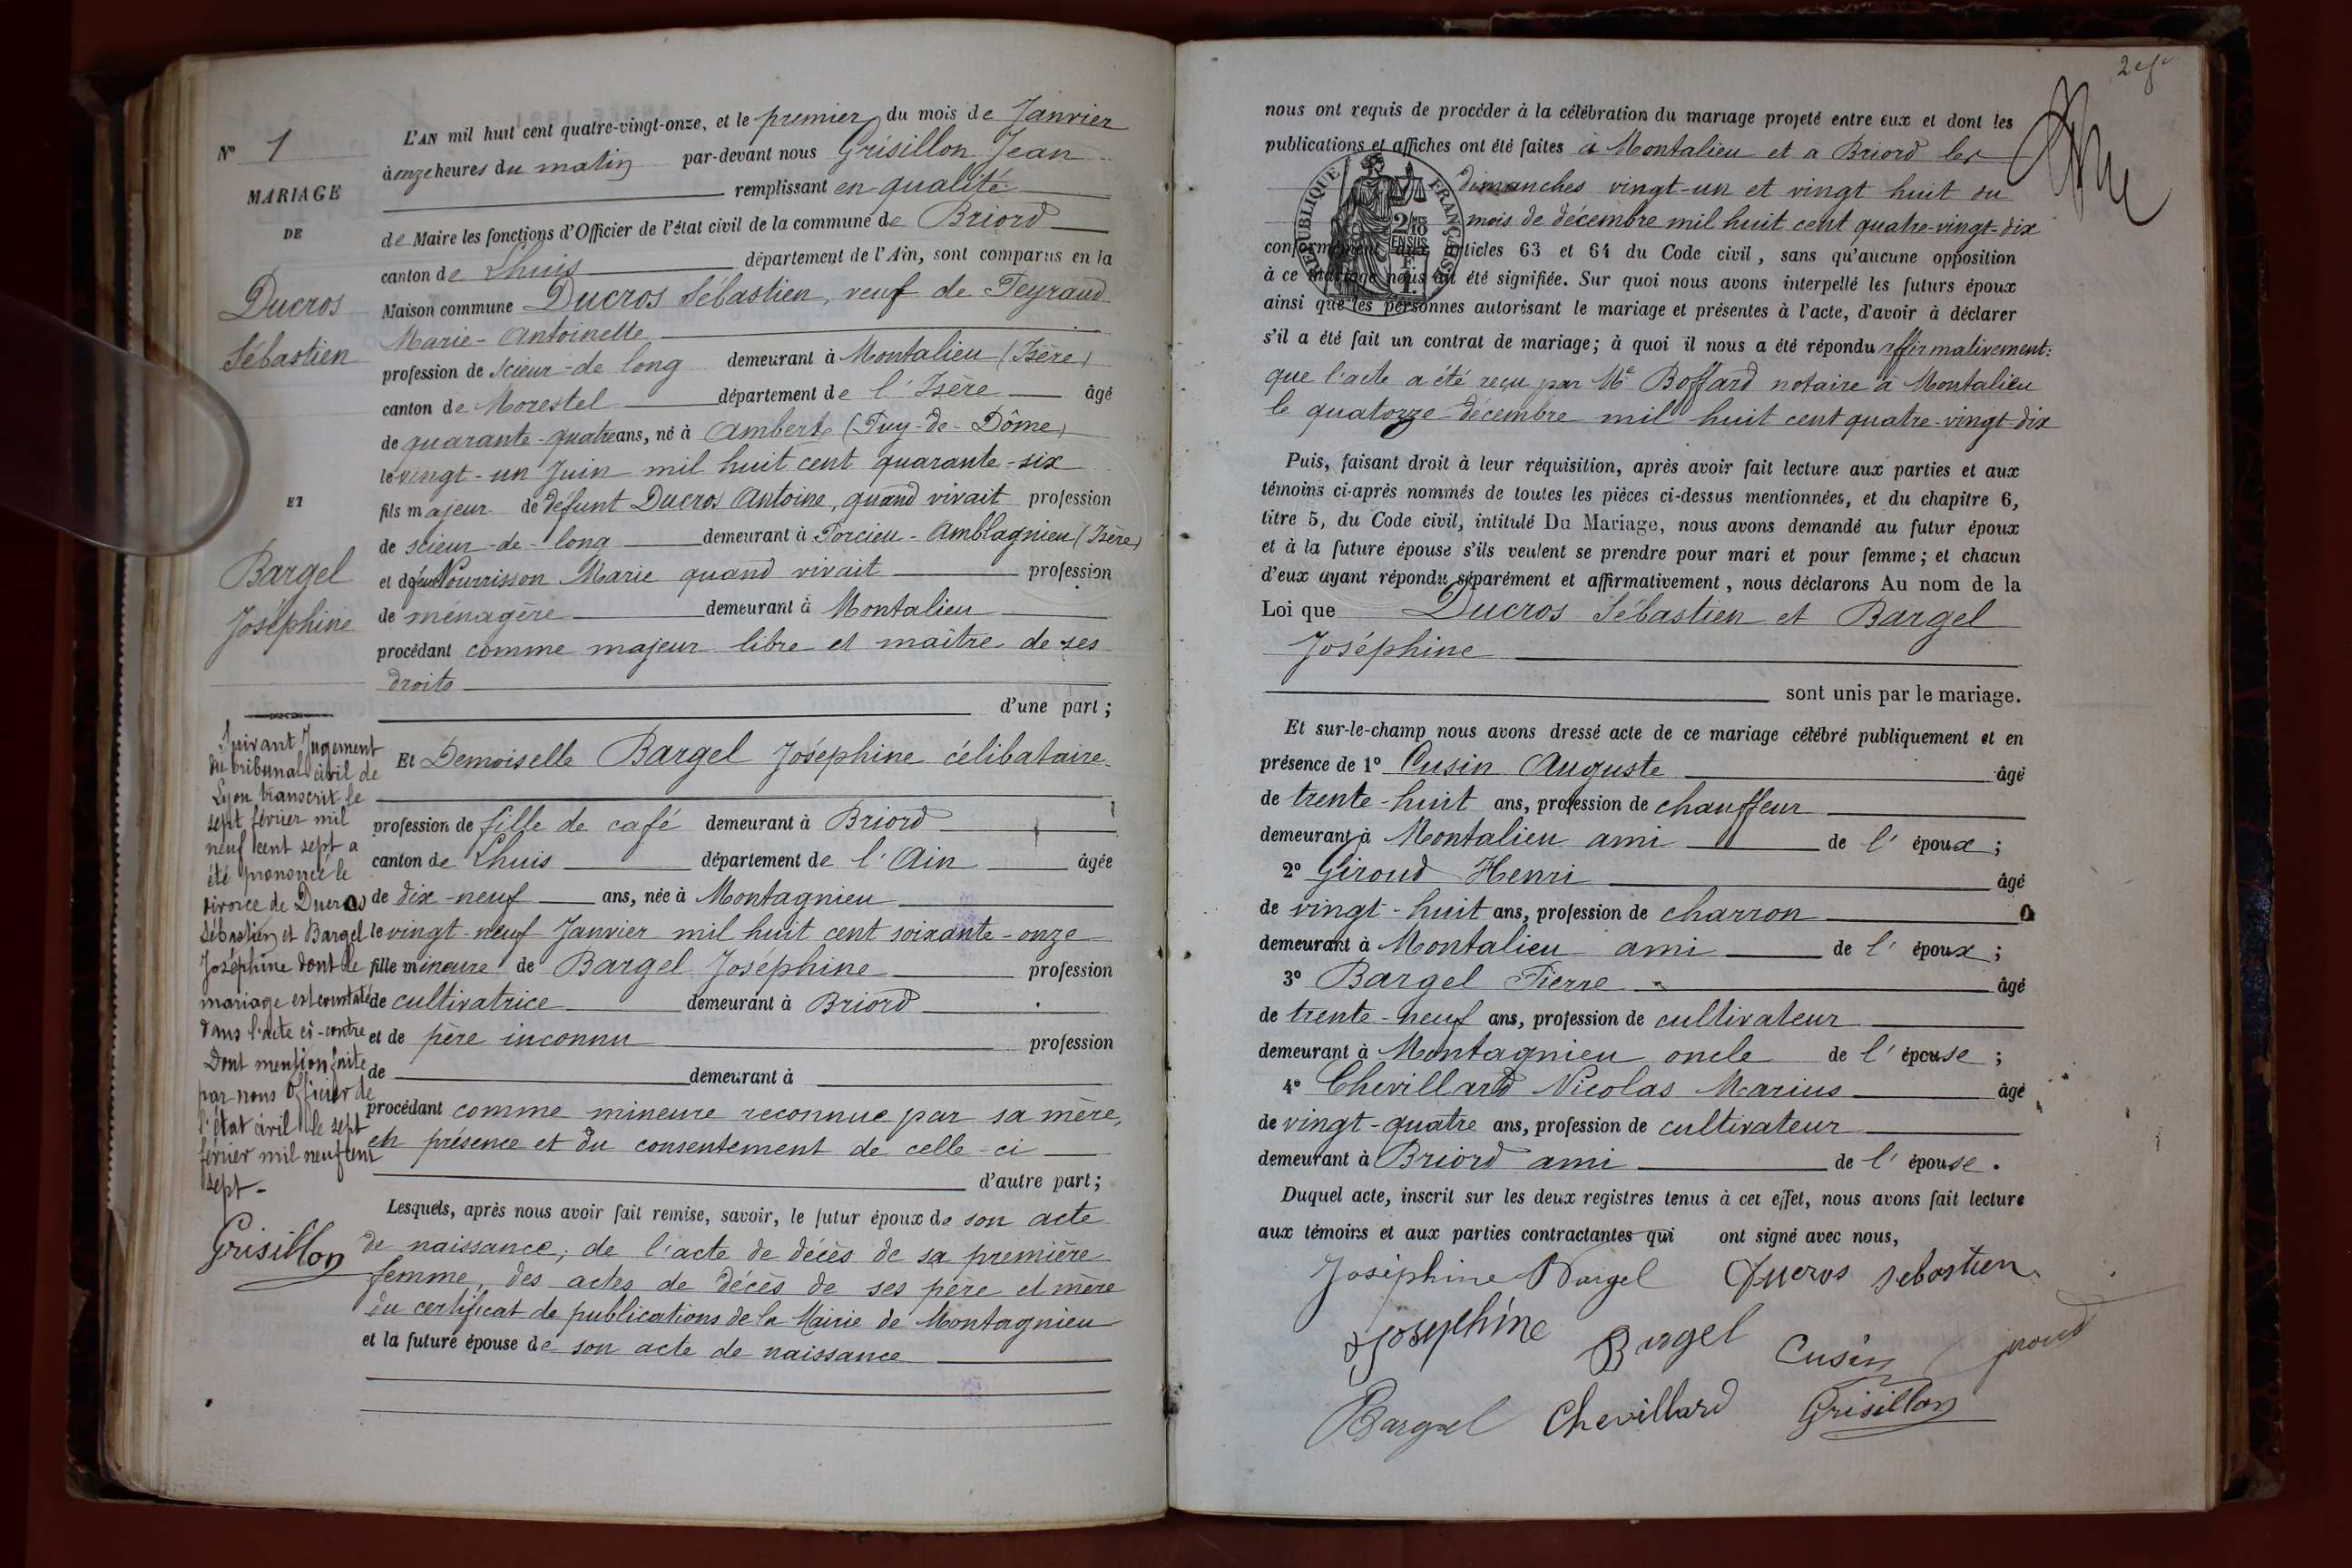 N° 1
MARIAGE
DE
Ducros
Sébastien
ET
Bargel
Joséphine
Suivant Jugement
du tribunal civil de
Lyon transcrit le
sept février mil
neuf cent sept a
été prononcé le
divorce de Ducros
Sébastien et Bargel
Joséphine dont le
mariage est constaté
dans l'acte ci-contre
Dont mention faite
par nous Officier de
l'état civil le sept
février mil neuf cent
sept -
Grisillon
L'AN mil huit cent quatre-vingt-onze, et le premier du mois de Janvier
à onze heures du matin par-devant nous Grisillon Jean
remplissant en qualité
de Maire les fonctions d'Officier de l'état civil de la commune de Briord
canton de Lhuis département de l'Ain, sont comparus en la
Maison commune Ducros Sébastien, veuf de Peyraud
Marie-Antoinette
profession de scieur-de long demeurant à Montalieu (Isère)
canton de Morestel département de l'Isère âgé
de quarante-quatre ans, né à Ambert (Puy-de-Dôme)
le vingt-un Juin mil huit cent quarante-six
fils majeur de défunt Ducros Antoine, quand vivait profession
de scieur-de-long demeurant à Porcieu-Amblagnieu (Isère)
et de feue Nourrisson Marie quand vivait profession
de ménagère demeurant à Montalieu
procédant comme majeur libre et maître de ses
droits
d'une part ;
Et Demoiselle Bargel Joséphine célibataire
profession de fille de café demeurant à Briord
canton de Lhuis département de l'Ain âgée
de dix-neuf ans, née à Montagnieu
le vingt-neuf Janvier mil huit cent soixante-onze
fille mineure de Bargel Joséphine profession
de cultivatrice demeurant à Briord
et de père inconnu profession
de demeurant à
procédant comme mineure reconnue par sa mère,
en présence et du consentement de celle-ci
d'autre part ;
Lesquels, après nous avoir fait remise, savoir, le futur époux de son acte
de naissance, de l'acte de décès de sa première
femme, des actes de décès de ses père et mère
du certificat de publications de la Mairie de Montagnieu
et la future épouse de son acte de naissance
nous ont requis de procéder à la célébration du mariage projeté entre eux et dont les
publications et affiches ont été faites à Montalieu et a Briord les
dimanches vingt-un et vingt huit du
mois de décembre mil huit cent quatre-vingt-dix
RÉPUBLIQUE FRANÇAISE
2/10
EN SUS
conformément aux articles 63 et 64 du Code civil, sans qu'aucune opposition
à ce mariage nous ait été signifiée. Sur quoi nous avons interpellé les futurs époux
ainsi que les personnes autorisant le mariage et présentes à l'acte, d'avoir à déclarer
s'il a été fait un contrat de mariage ; à quoi il nous a été répondu affirmativement :
que l'acte a été reçu par Me Boffard notaire à Montalieu
le quatorze décembre mil huit cent quatre-vingt-dix
Puis, faisant droit à leur réquisition, après avoir fait lecture aux parties et aux
témoins ci-après nommés de toutes les pièces ci-dessus mentionnées, et du chapitre 6,
titre 5, du Code civil, intitulé Du Mariage, nous avons demandé au futur époux
et à la future épouse s'ils veulent se prendre pour mari et pour femme ; et chacun
d'eux ayant répondu séparément et affirmativement, nous déclarons Au nom de la
Loi que Ducros Sébastien et Bargel
Joséphine
sont unis par le mariage.
Et sur-le-champ nous avons dressé acte de ce mariage célébré publiquement et en
présence de 1° Cusin Auguste âgé
de trente-huit ans, profession de chauffeur
demeurant à Montalieu ami de l'époux ;
2° Giroud Henri âgé
de vingt-huit ans, profession de charron
demeurant à Montalieu ami de l'époux ;
3° Bargel Pierre âgé
de trente-neuf ans, profession de cultivateur
demeurant à Montagnieu oncle de l'épouse ;
4° Chevillard Nicolas Marius âgé
de vingt-quatre ans, profession de cultivateur
demeurant à Briord ami de l'épouse.
Duquel acte, inscrit sur les deux registres tenus à cet effet, nous avons fait lecture
aux témoins et aux parties contractantes qui ont signé avec nous,
Joséphine Bargel Ducros sebastien
Josephine Bargel Cusin
Bargel Chevillard Grisillon